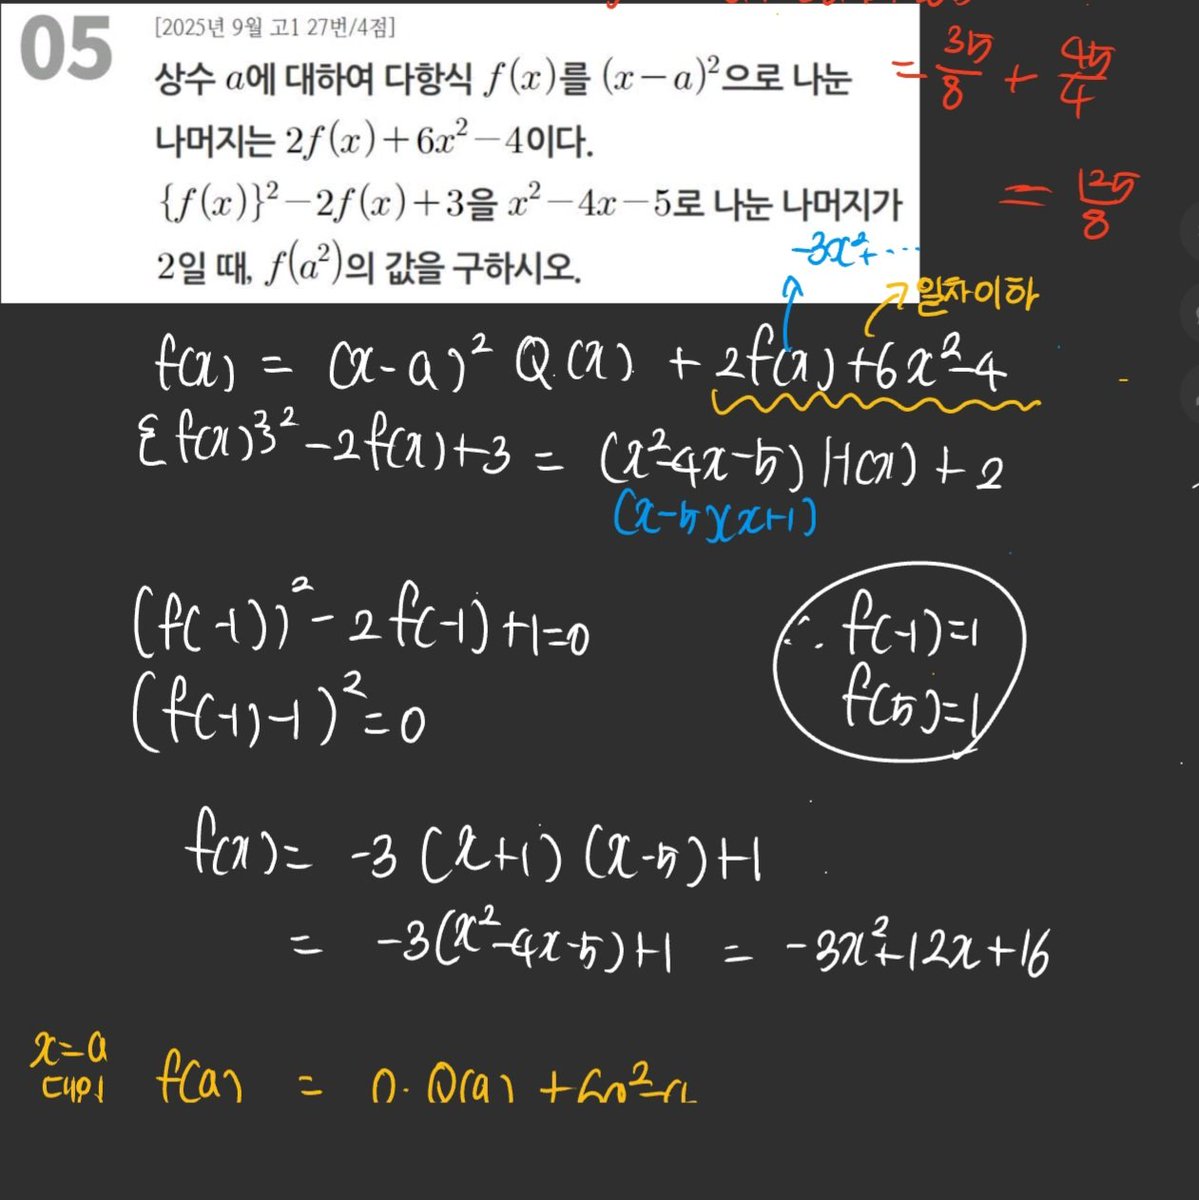 05
[2025년 9월 고1 27번/4점]
상수 a에 대하여 다항식 f(x)를 (x-a)²으로 나눈
나머지는 2f(x)+6x²-4이다.
{f(x)}²-2f(x)+3을 x²-4x-5로 나눈 나머지가
2일 때, f(a²)의 값을 구하시오.
= 35/8 + 45/4
= 125/8
-3x²+...
일차이하
f(x) = (x-a)² Q(x) + 2f(x)+6x²-4
{f(x)}²-2f(x)+3 = (x²-4x-5) H(x) + 2
(x-5)(x+1)
(f(-1))²-2f(-1)+1=0
(f(-1)-1)²=0
∴ f(-1)=1
f(5)=1
f(x)= -3(x+1)(x-5)+1
= -3(x²-4x-5)+1 = -3x²+12x+16
x=a
대입
f(a) = 0·Q(a) +